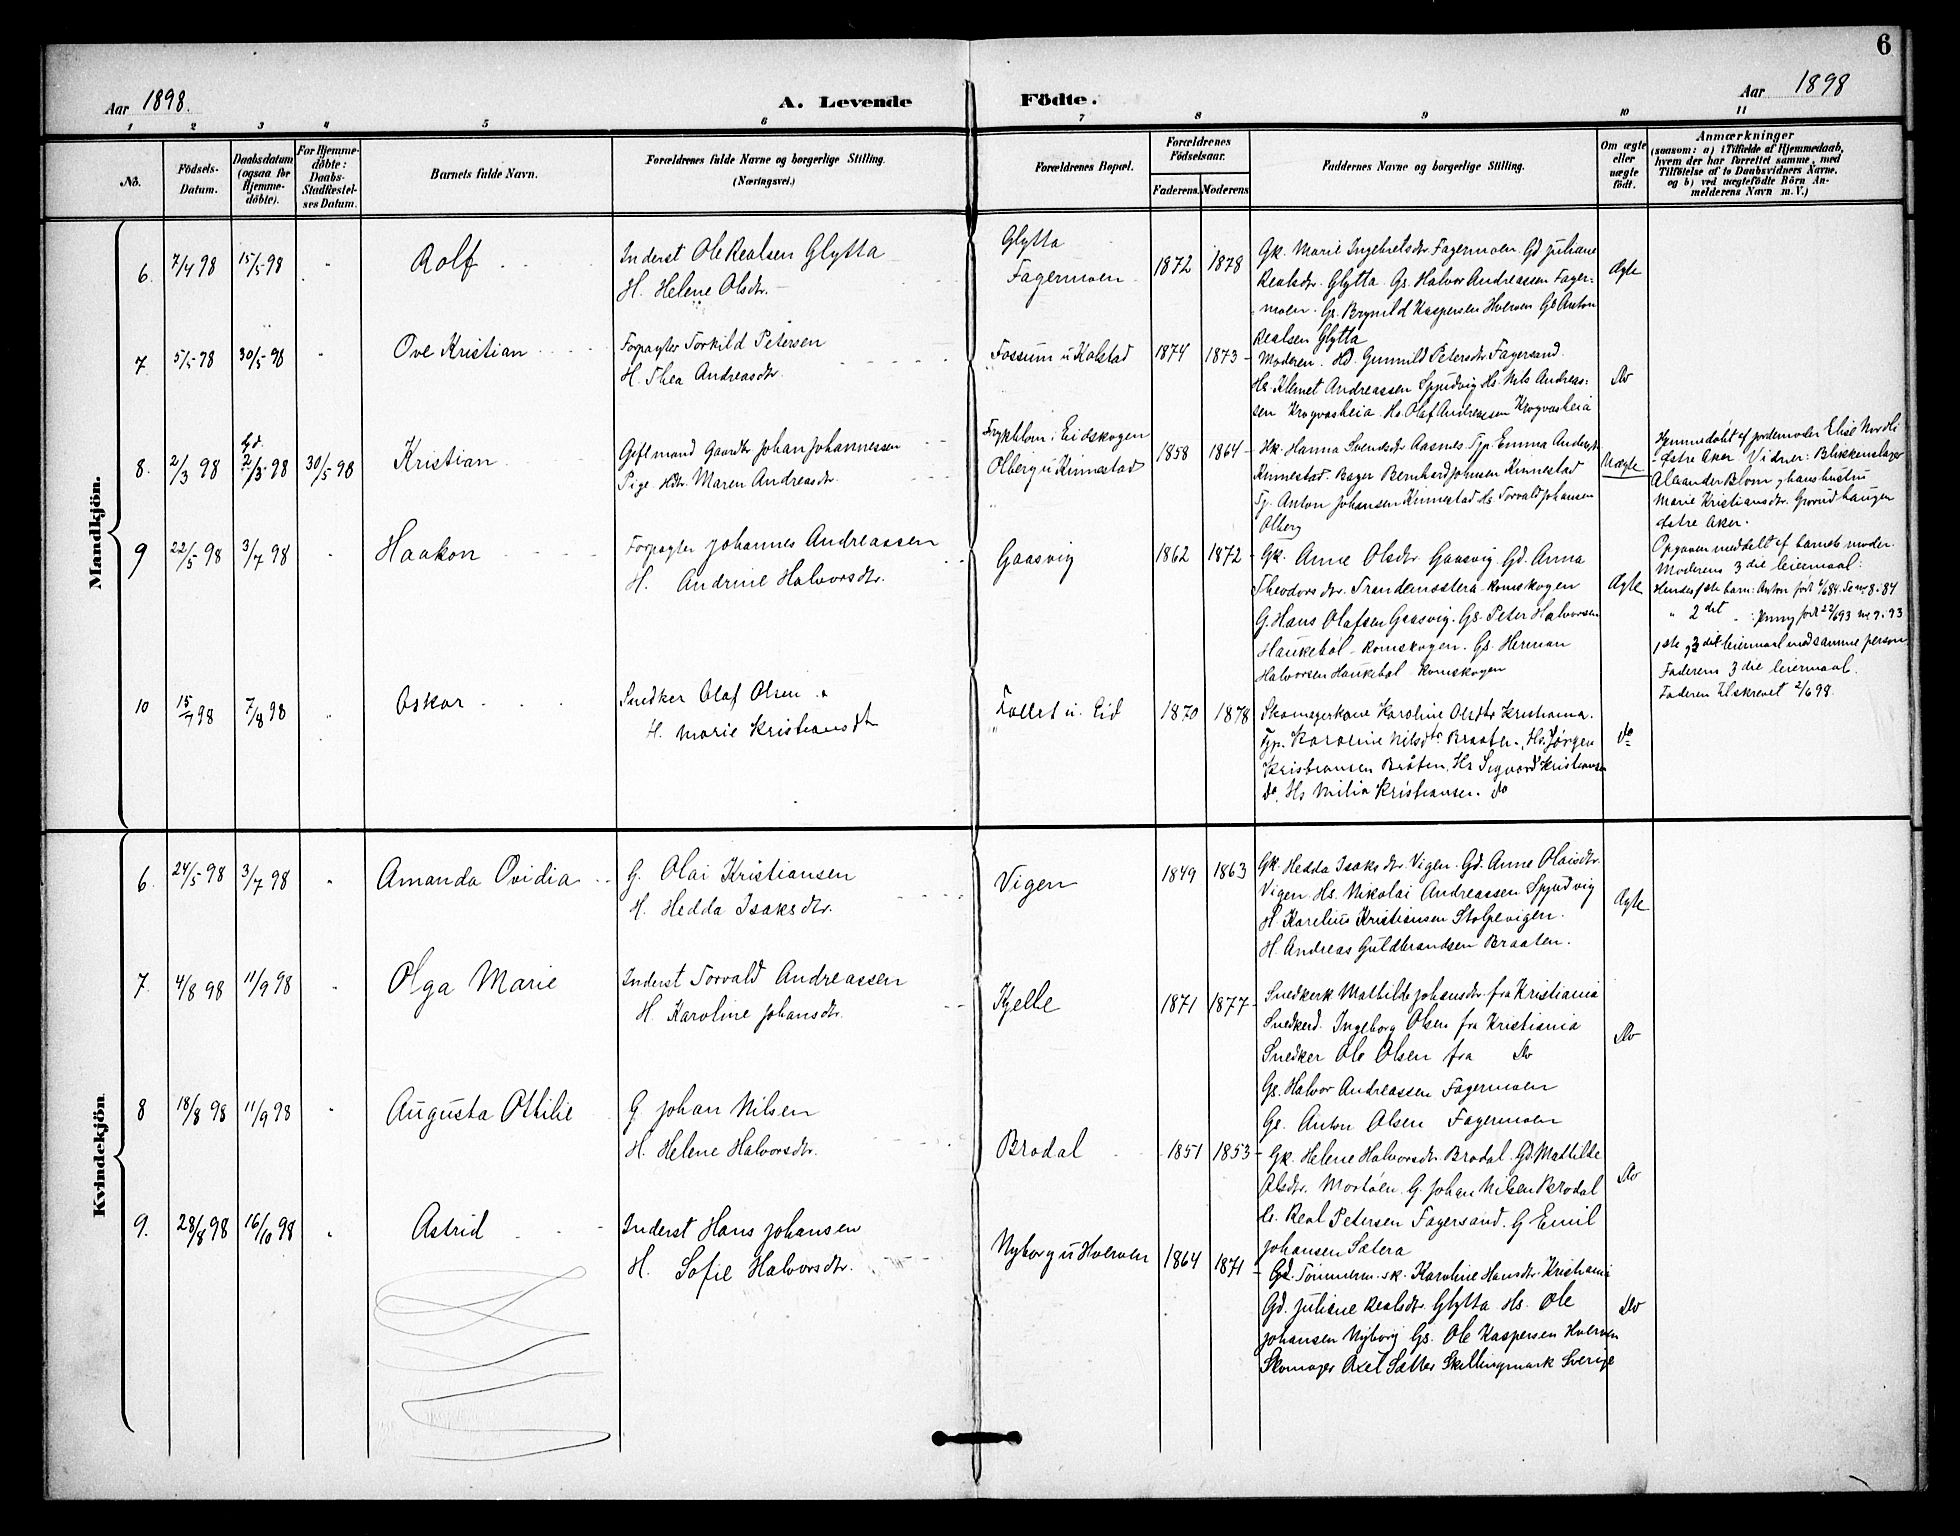 6
Aar 1898.
A. Levende Födte.
Aar 1898
1 2 3 4 5 6 7 8 9 10 11
No.
Födsels-
Datum.
Daabsdatum
(ogsaa for
Hjemme-
döbte).
For Hjemme-
döbte:
Daabs-
Stadfestel-
ses Datum.
Barnets fulde Navn.
Forældrenes fulde Navne og borgerlige Stilling.
(Næringsvei.)
Forældrenes Bopæl.
Forældrenes
Födselsaar.
Faderens. Moderens
Faddernes Navne og borgerlige Stilling.
Om ægte
eller
uægte
födt.
Anmærkninger
(saasom: a) i Tilfælde af Hjemmedaab,
hvem der har forrettet samme, med
Tilföielse af to Daabsvidners Navne,
og b) ved uægtefödte Börn An-
melderens Navn m. V.)
Mandkjön.
6 7/4 98 15/5 98 Rolf
Inderst Ole Realsen Glytta
H. Helene Olsdtr.
Glytta
Fagermoen 1872 1878
Gk. Marie Ingebretsdtr. Fagermoen Gd Juliane
Realsdtr. Glytta. Gs. Halvor Andreassen Fager-
moen. Gs. Brynild Kaspersen Hverven Gs Anton
Realsen Glytta
Ægte
7 5/5 98 30/5 98 Ove Kristian
Forpagter Torkild Petersen
H. Thea Andreasdtr.
Fossum u Kolstad 1874 1873
Moderen. Hd. Gunnild Petersdtr Fagersand.
Hs. Klemet Andreassen Spydvig Hs. Nils Andreas-
sen Krogvasheia. Hs. Olaf Andreassen Krogvasheia
Do
8. 2/3 98 2/3 98 30/5 98 Kristian
Gift mand Gaardbr Johan Johannessen
Pige Maren Andreasdtr.
Eidskogen
Olberg u Kinnestad 1858 1864
Hk. Hanna Svendsdtr Aasnes. Tp. Emma Andersdtr
Kinnestad. Bager Bernhard Johnsen Kinnestad
Tj. Anton Johansen Kinnestad Hs. Torvald Johansen
Olberg
Uægte
Hjemmedøbt af jordemoder Elise Nordli
Østre Aker. Vidner: Blikkenslager
Alexander Blom & hans hustru
Marie Kristiansdtr. Grorudhaugen
Østre Aker.
Opgaven meddelt af barnets moder.
Moderens 3 die leiermaal:
Hendes 1ste barn: Anton født 4/6 84
" 2 det " : Jenny født 22/6 93
1ste og 3 die leiermaal med samme person
Faderens 3 die leiermaal.
Faderen tilskrevet 2/6 98.
9 22/5 98 3/7 98 Haakon
Forpagter Johannes Andreassen
H. Andrine Halvorsdtr.
Gaasvig 1862 1872
Gk. Anne Olsdtr Gaasvig Gd. Anna
Theodorsdtr. Trandemsætra Rømskogen
G. Hans Olafsen Gaasvig. Gs. Peter Halvorsen
Haukebøl Rømskogen. Gs. Herman
Halvorsen Haukebøl Rømskogen
Ægte
10 15/7 98 7/8 98 Oskar
Snedker Olaf Olsen
H. Marie Kristiansdtr
Tollet u. Eid 1870 1878
Skomagerkone Karoline Olsdtr Kristiania.
Karoline Nilsdtr Braaten. Hs. Jørgen
Kristiansen Bråten. Hs Sigvard Kristiansen
do. Hs Milia Kristiansen. do
do
Kvindekjön.
6. 24/5 98 3/7 98 Amanda Ovidia
G. Olai Kristiansen
H. Hedda Isaksdtr.
Vigen 1849 1863
Gk. Hedda Isaksdtr Vigen. Gd. Anne Olaisdtr.
Vigen Hs. Nikolai Andreassen Spydvig
H. Karelius Kristiansen Stolpevigen.
H. Andreas Guldbrandsen Braaten.
Ægte
7. 4/8 98 11/9 98 Olga Marie
Inderst Torvald Andreassen
H. Karoline Johansdtr.
Kjelle 1871 1877
Snedkerk Mathilde Johansdtr. fra Kristiania
Snedkerd. Ingeborg Olsen fra Kristiania
Snedker Ole Olsen fra Do
Gs. Halvor Andreassen Fagermoen
Gs. Anton Olsen Fagermoen
Do
8 18/8 98 11/9 98 Augusta Otthilie
G Johan Nilsen
H. Helene Halvorsdtr.
Brødal 1851 1853
Gk. Helene Halvorsdtr. Brødal. Gd. Mathilde
Olsdtr. G. Johan Nilsen Brødal
Gs. Real Petersen Fagersand. G Emil
Johansen Sætera
Do
9. 28/8 98 16/10 98 Astrid
Inderst Hans Johansen
H. Sofie Halvorsdtr.
Nyborg u Hverven 1864 1871
Tømmerm.sk. Karoline Hansdtr. Kristiania
Gd. Juliane Realsdtr. Glytta Hs. Ole
Johansen Nyborg Gs. Ole Kaspersen Hverven
Skomager Axel Sætter Skillingmark Sverige
Do